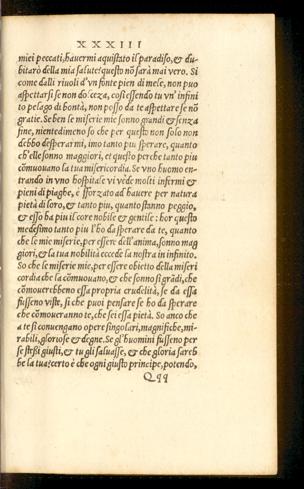 XXXIII
miei peccati, hauermi aquistato il paradiso, & du-
bitarò della mia salute? questo nõ sarà mai vero. Si
come dalli riuoli d'vn fonte pien di mele, non puo
aspettarsi se non dolcezza, così essendo tu vn' infini
to pelago di bontà, non posso da te aspettare se nõ
gratie. Se ben le miserie mie sonno grandi & senza
fine, nientedimeno so che per questo non solo non
debbo desperarmi, imo tanto piu sperare, quanto
ch'elle sonno maggiori, et questo perche tanto piu
cõmuouano la tua misericordia. Se vno huomo en-
trando in vno hospitale vi vede molti infermi &
pieni di piaghe, è sforzato ad hauere per natura
pietà di loro, & tanto piu, quanto stanno peggio,
& esso ha piu il core nobile & gentile: hor questo
medesimo tanto piu l'ho da sperare da te, quanto
che le mie miserie, per essere dell'anima, sonno mag
giori, & la tua nobilità eccede la nostra in infinito.
So che le miserie mie, per essere obietto della miseri
cordia che la cõmuouano, & che sonno sì grãdi, che
cõmouerebbeno essa propria crudelità, se da essa
fusseno viste, sì che puoi pensare se ho da sperare
che cõmoueranno te, che sei essa pietà. So anco che
a te si conuengano opere singolari, magnifiche, mi-
rabili, gloriose & degne. Se gl'huomini fusseno per
se stessi giusti, & tu gli saluasse, & che gloria sareb
be la tua? certo è che ogni giusto principe, potendo,
Qqq